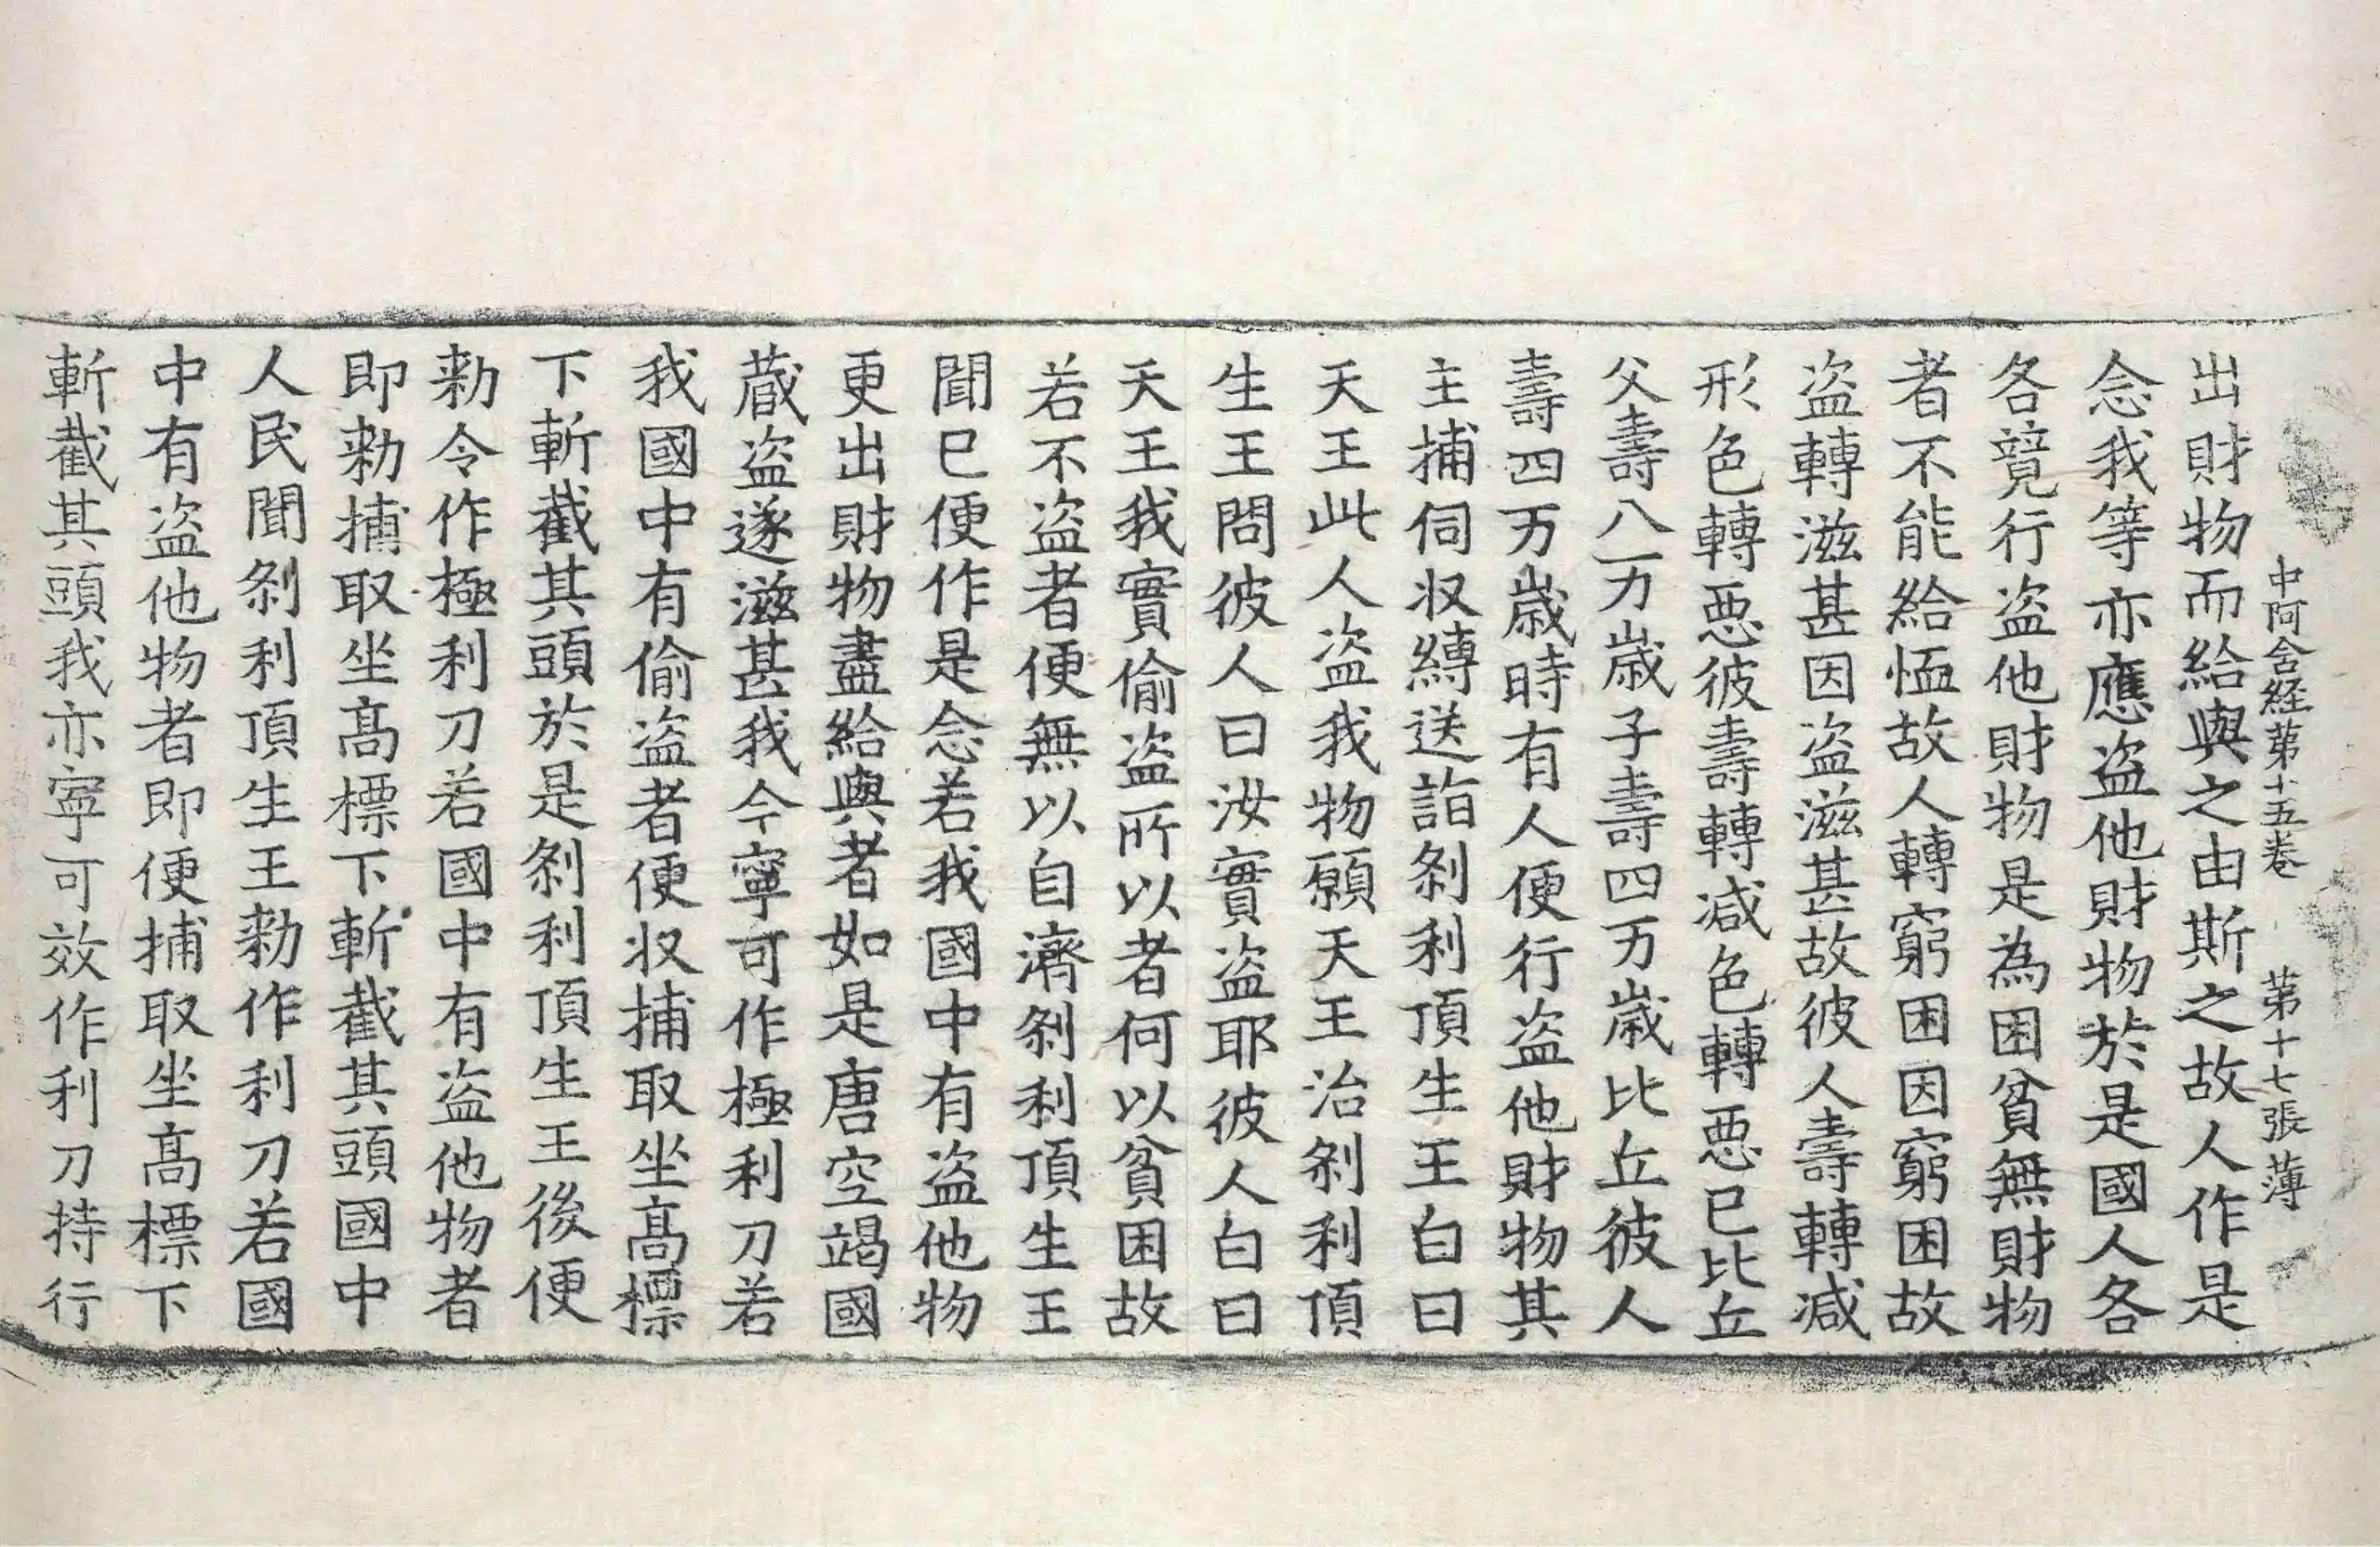 中阿含経苐十五巻　苐十七張　薄
出財物而給與之由斯之故人作是
念我等亦應盗他財物於是國人各
各竸行盗他財物是為困貧無財物
者不能給恤故人轉窮困因窮困故
盗轉滋甚因盗滋甚故彼人壽轉减
形色轉惡彼壽轉减色轉惡已比丘
父壽八万歳子壽四万歳比丘彼人
壽四万歳時有人便行盗他財物其
主捕伺収縳送詣刹利頂生王白曰
天王此人盗我物願天王治刹利頂
生王問彼人曰汝實盗耶彼人白曰
天王我實偷盗所以者何以貧困故
若不盗者便無以自濟刹利頂生王
聞已便作是念若我國中有盗他物
更出財物盡給與者如是唐空竭國
蔵盗遂滋甚我今寧可作極利刀若
我國中有偷盗者便収捕取坐髙標
下斬截其頭於是刹利頂生王後便
勑令作極利刀若國中有盗他物者
即勑捕取坐髙標下斬截其頭國中
人民聞刹利頂生王勑作利刀若國
中有盗他物者即便捕取坐髙標下
斬截其頭我亦寧可效作利刀持行